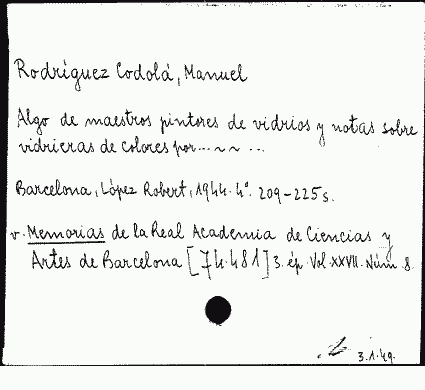 Rodríguez Codolá, Manuel
Algo de maestros pintores de vidrios y notas sobre
vidrieras de colores por...~~ ...
Barcelona, López Robert, 1944. 4º. 209-225 s.
v. Memorias de la Real Academia de Ciencias y
Artes de Barcelona [74.481] 3. ép. Vol. XXVII. Núm. 8.
3.1.49.